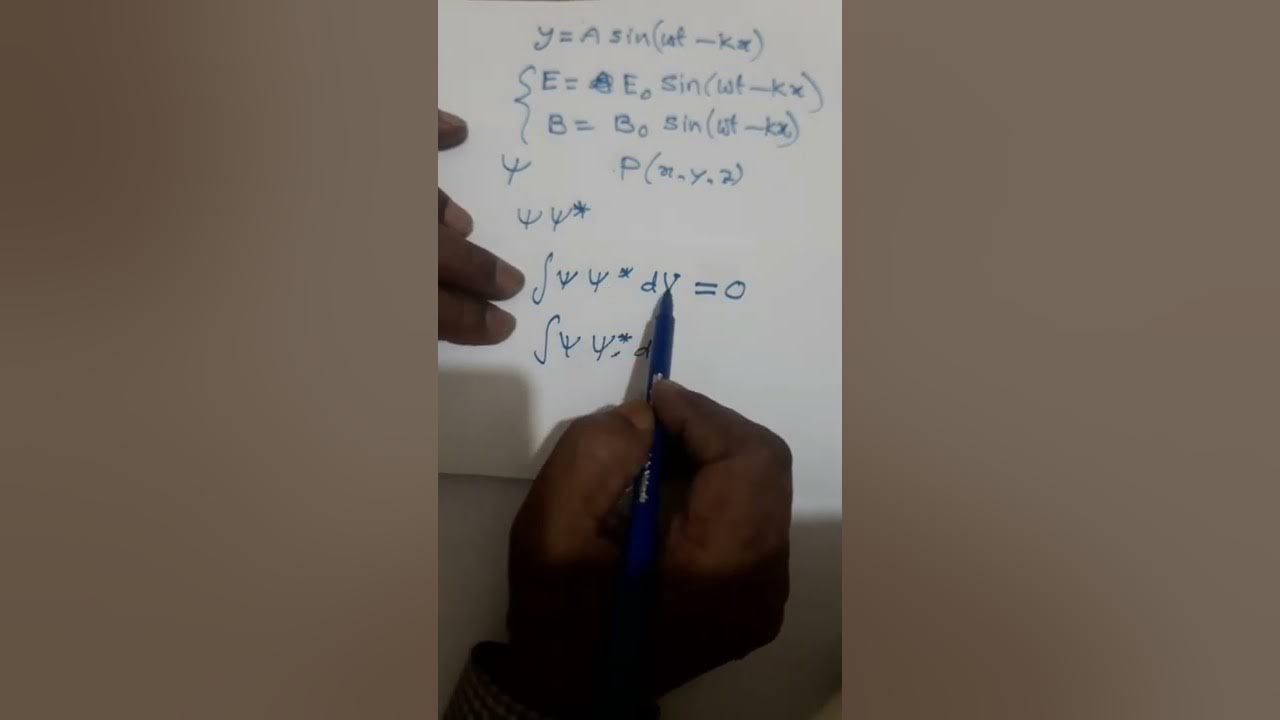 y = A sin(ωt - kx)
E = E₀ sin(ωt - kx)
B = B₀ sin(ωt - kx)
Ψ P(x, y, z)
Ψ Ψ*
∫ Ψ Ψ* dV = 0
∫ Ψ Ψ* d